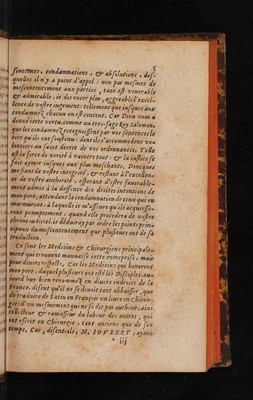 5
sentences, condamnations, & absolutions, des-
quelles il n'y a point d'appel: non pas mesmes de
mescontentement aux parties, tant est venerable
& admirable, ie dis encor plus, aggreable l'excel-
lence de vostre iugement: tellement que iusques aux
condamnez chacun en est content. Car Dieu vous a
donné cette vertu, comme au tres-sage Roy Salomon,
que les condamnez recognoissent par vos sentences le
tort qu'ils ont soustenu: dont ils s'accommodent vo-
lontiers au saint decret de vos ordonnances. Telle
est la force du verité à vaincre tout: & la iustice se
fait aymer iusques aux plus meschants. Doncques
me fiant de vostre integrité, & restant à l'excellen-
ce de vostre authorité, esperant d'estre fauorable-
ment admis à la deffence des droites intentions de
mon pere, attendant la condamnation de ceux qui en
murmurent: à laquelle ie m'asseure qu'ils acquiesce-
ront promptement, quand elle procedera de vostre
throne iudicial, ie deduiray par ordre les points prin-
cipaux du mescontentement que plusieurs ont de sa
traduction.
Ce sont les Medecins & Chirurgiens principale-
ment qui treuuent mauuaise cette entreprise, mais
pour diuers respects. Car les Medecins qui honorent
mon pere, duquel plusieurs ont esté les Disciples, au-
iourd'huy bien renommez en diuers endroits de la
France, disent qu'il ne se deuoit tant abbaisser, que
de traduire de Latin en François un liure en Chirur-
gie: d'un mesmement qui ne se dit pas autheur, ains
collecteur & ramasseur du labeur des autres, qui
ont escrit en Chirurgie, tant anciens que de son
temps. Car, disent-ils, M. IOVBERT, ayant
* iij